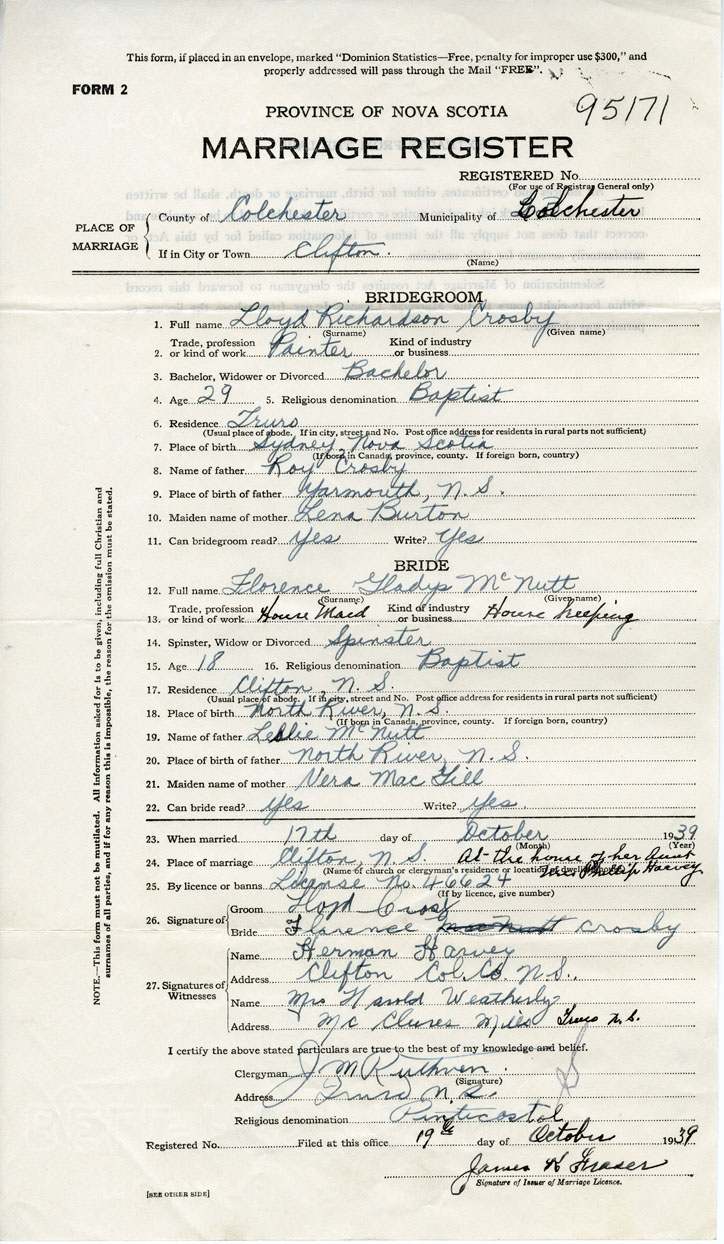 This form, if placed in an envelope, marked "Dominion Statistics—Free, penalty for improper use $300," and
properly addressed will pass through the Mail "FREE".
FORM 2
95171
PROVINCE OF NOVA SCOTIA
MARRIAGE REGISTER
REGISTERED No.
(For use of Registrar General only)
PLACE OF MARRIAGE
County of Colchester Municipality of Colchester
If in City or Town Clifton.
(Name)
BRIDEGROOM
1. Full name Lloyd Richardson Crosby
(Surname) (Given name)
2. Trade, profession or kind of work Painter Kind of industry or business
3. Bachelor, Widower or Divorced Bachelor
4. Age 29 5. Religious denomination Baptist
6. Residence Truro
(Usual place of abode. If in city, street and No. Post office address for residents in rural parts not sufficient)
7. Place of birth Sydney, Nova Scotia
(If born in Canada, province, county. If foreign born, country)
8. Name of father Roy Crosby
9. Place of birth of father Yarmouth, N.S.
10. Maiden name of mother Lena Burton
11. Can bridegroom read? Yes Write? Yes
BRIDE
12. Full name Florence Gladys McNutt
(Surname) (Given name)
13. Trade, profession or kind of work House Maed Kind of industry or business House keeping
14. Spinster, Widow or Divorced Spinster
15. Age 18 16. Religious denomination Baptist
17. Residence Clifton, N.S.
(Usual place of abode. If in city, street and No. Post office address for residents in rural parts not sufficient)
18. Place of birth North River, N.S.
(If born in Canada, province, county. If foreign born, country)
19. Name of father Leslie McNutt
20. Place of birth of father North River, N.S.
21. Maiden name of mother Vera Mac Gill
22. Can bride read? Yes Write? Yes.
23. When married 17th day of October 1939
(Month) (Year)
24. Place of marriage Clifton, N.S. At the home of her Aunt
(Name of church or clergyman's residence or location of dwelling) Mrs Phillip Harvey
25. By licence or banns License No. 46624
(If by licence, give number)
26. Signature of
Groom Lloyd Crosby
Bride Florence MacNutt Crosby
27. Signatures of Witnesses
Name Herman Harvey
Address Clifton Col. Co N.S.
Name Mrs Harold Weatherby
Address Mc Clures Mills Truro N.S.
I certify the above stated particulars are true to the best of my knowledge and belief.
Clergyman J M Ruthven.
(Signature)
Address Truro N.S.
Religious denomination Penticostol
Registered No. Filed at this office 19th day of October 1939
James H Fraser
Signature of Issuer of Marriage Licence.
[SEE OTHER SIDE]
NOTE.—This form must not be mutilated. All information asked for is to be given, including full Christian and
surnames of all parties, and if for any reason this is impossible, the reason for the omission must be stated.